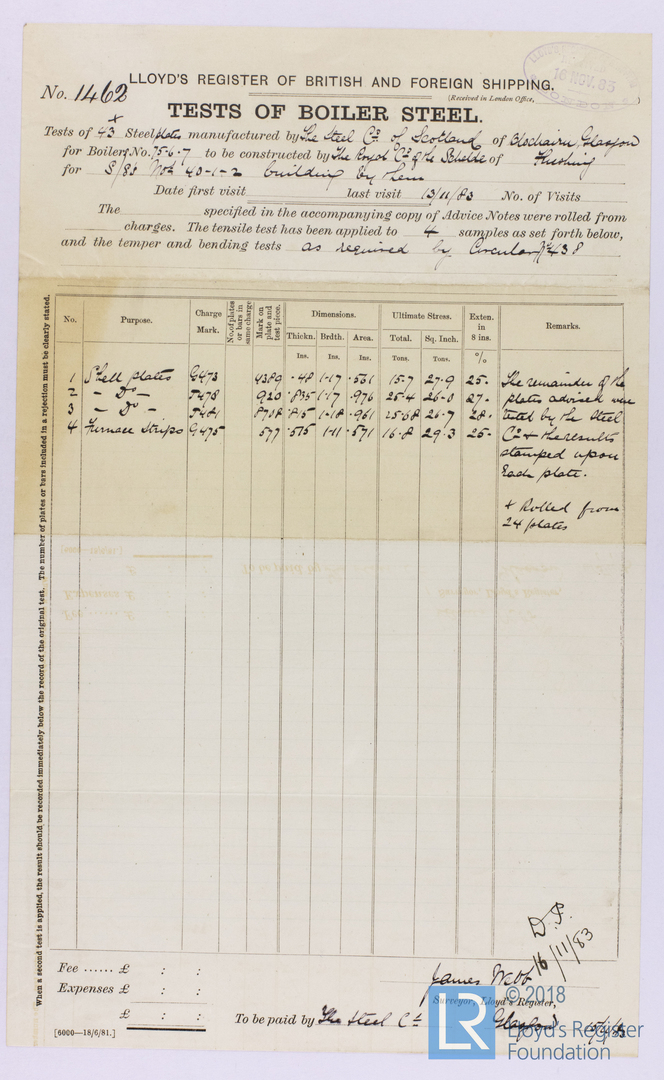 LLOYD'S REGISTER OF BRITISH AND FOREIGN SHIPPING.
No. 1462
(Received in London Office,
16 NOV. 83
TESTS OF BOILER STEEL.
x
Tests of 43 Steel plates manufactured by The Steel Co. of Scotland of Blochairn, Glasgow
for Boilers No. 75·6·7 to be constructed by The Royal Co. of the Schelde of Flushing
for S/83 Nos 40-1-2 building by them
Date first visit last visit 13/11/83 No. of Visits
The specified in the accompanying copy of Advice Notes were rolled from
charges. The tensile test has been applied to 4 samples as set forth below,
and the temper and bending tests as required by Circular No 438
When a second test is applied, the result should be recorded immediately below the record of the original test. The number of plates or bars included in a rejection must be clearly stated.
No. Purpose. Charge Mark. No. of plates or bars in same charge Mark on plate and test piece. Dimensions. Ultimate Stress. Exten. in 8 ins. Remarks.
Thickn. Brdth. Area. Total. Sq. Inch.
Ins. Ins. Ins. Tons. Tons. %
1 Shell plates G473 4389 ·48 1·17 ·561 15·7 27·9 25·
2 - Do - J478 920 ·835 1·17 ·976 25·4 26·0 27·
3 - Do - J481 8718 ·815 1·18 ·961 25·68 26·7 28·
4 Furnace Strips G475 577 ·515 1·11 ·571 16·8 29·3 25·
The remainder of the
plates advised were
tested by the Steel
Co & the results
stamped upon
each plate.
x Rolled from
24 plates
D.P.
16/11/83
Fee ...... £ : :
Expenses £ : :
£ : :
James Webb
Surveyor, Lloyd's Register,
To be paid by The Steel Co. Glasgow
[6000—18/6/81.]
LR
© 2018
Lloyd's Register
Foundation